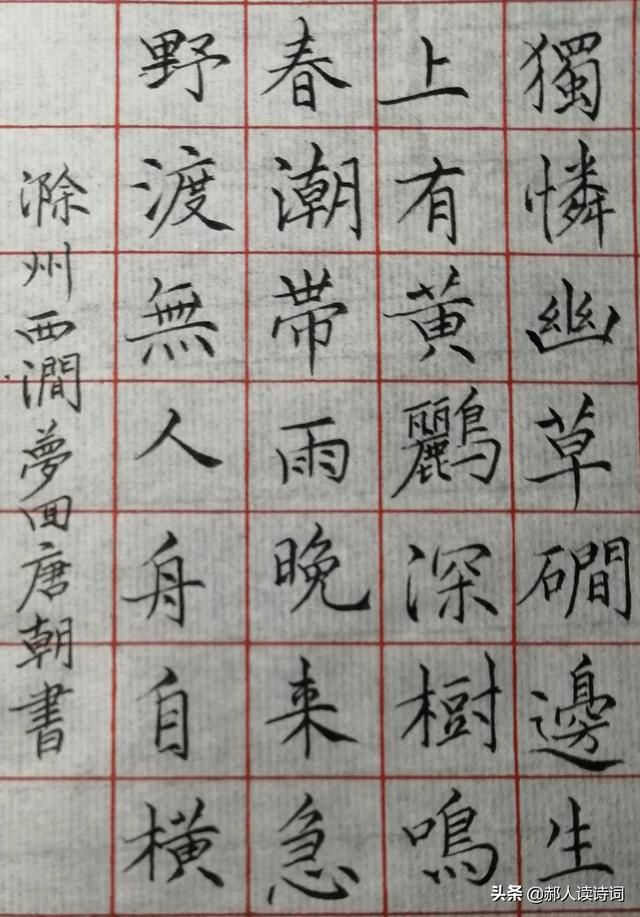 獨憐幽草磵邊生
上有黃鸝深樹鳴
春潮帶雨晚来急
野渡無人舟自橫
滁州西澗夢回唐朝書
头条 @郝人读诗词